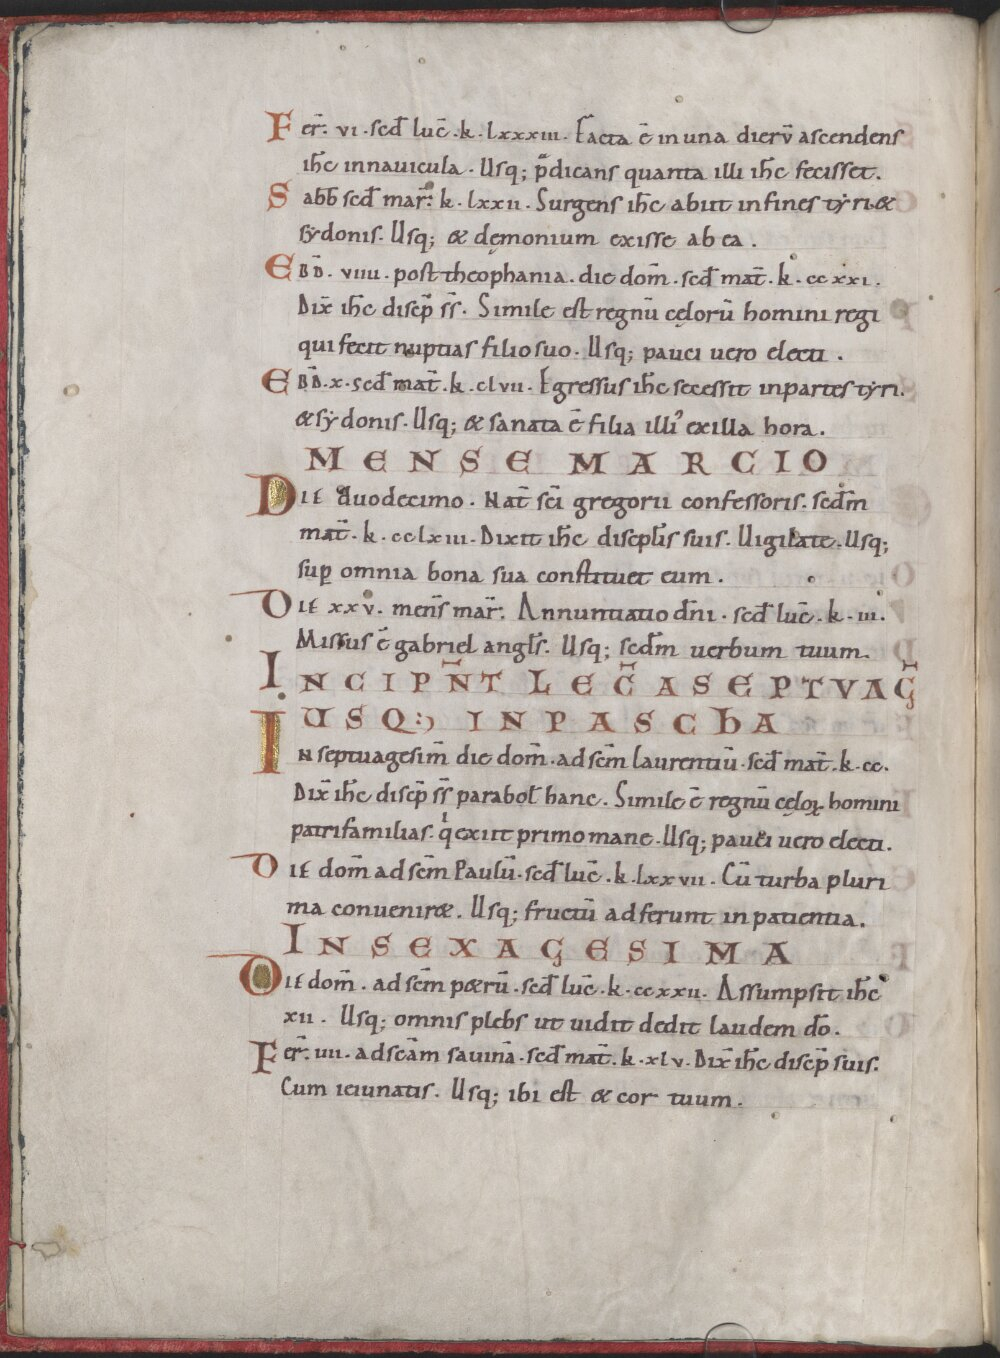 Fer̄. vi. scd̄ luc̄. k. lxxxiii. Facta ē in una dierū ascendens
ih̄c in nauicula. Usq; p̄dicans quanta illi ih̄c fecisset.
Sabb̄ scd̄ mar̄. k. lxxii. Surgens ih̄c abiit in fines tẏri &
sẏdonis. Usq; & dęmonium exisse ab ea.
EBD̄. viiii. post theophania. die dom̄. scd̄ mat̄. k. ccxxi.
Dix̄ ih̄c discip̄ ss̄. Simile est regnū cęlorū homini regi
qui fecit nuptias filio suo. Usq; pauci uero electi.
EBD̄. x. scd̄ mat̄. k. clvii. Egressus ih̄c secessit in partes tẏri.
& sẏdonis. Usq; & sanata ē filia illi᾽ ex illa hora.
MENSE MARCIO
DIE duodecimo. Nat̄ sc̄i gregorii confessoris. scd̄m
mat̄. k. cclxiii. Dixit ih̄c discipl̄is suis. Uigilate. Usq;
sup̱ omnia bona sua constituet eum.
DIE xxv. mens̄ mar̄. Annuntiatio dn̄i. scd̄ luc̄. k. iii.
Missus ē gabriel angl̄s. Usq; scd̄m uerbum tuum.
INCIPN̄T LEC̄ A SEPTVAḠ
IUSQ: INPASCHA
IN septuagesim̄ die dom̄. ad scm̄ laurentiū. scd̄ mat̄. k. cc.
Dix̄ ih̄c discip̄ ss̄ parabol̄ hanc. Simile ē regnū cęloꝝ homini
patrifamilias. qͥ exiit primo mane. Usq; pauci uero electi.
DIE dom̄ ad scm̄ Paulū. scd̄ luc̄. k. lxxvii. Cū turba pluri
ma conuenir&. Usq; fructū adferunt in patientia.
IN SEXAGESIMA
DIE dom̄. ad scm̄ p&rū. scd̄ luc̄. k. ccxxii. Assumpsit ih̄c
xii. Usq; omnis plebs ut uidit dedit laudem dō.
Fer̄. iiii. ad scām sauinā. scd̄ mat̄. k. xlv. Dix̄ ih̄c discip̄ suis.
Cum ieiunatis. Usq; ibi est & cor tuum.